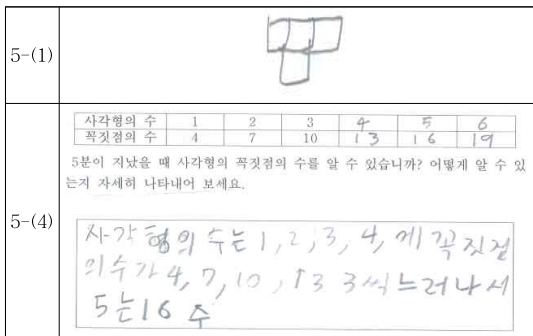 5-(1)
사각형의 수 1 2 3 4 5 6
꼭짓점의 수 4 7 10 13 16 19
5분이 지났을 때 사각형의 꼭짓점의 수를 알 수 있습니까? 어떻게 알 수 있
는지 자세히 나타내어 보세요.
5-(4)
사각형의 수는 1, 2, 3, 4, 에 꼭짓점
의수가 4, 7, 10, 13 3씩느러나서
5는16